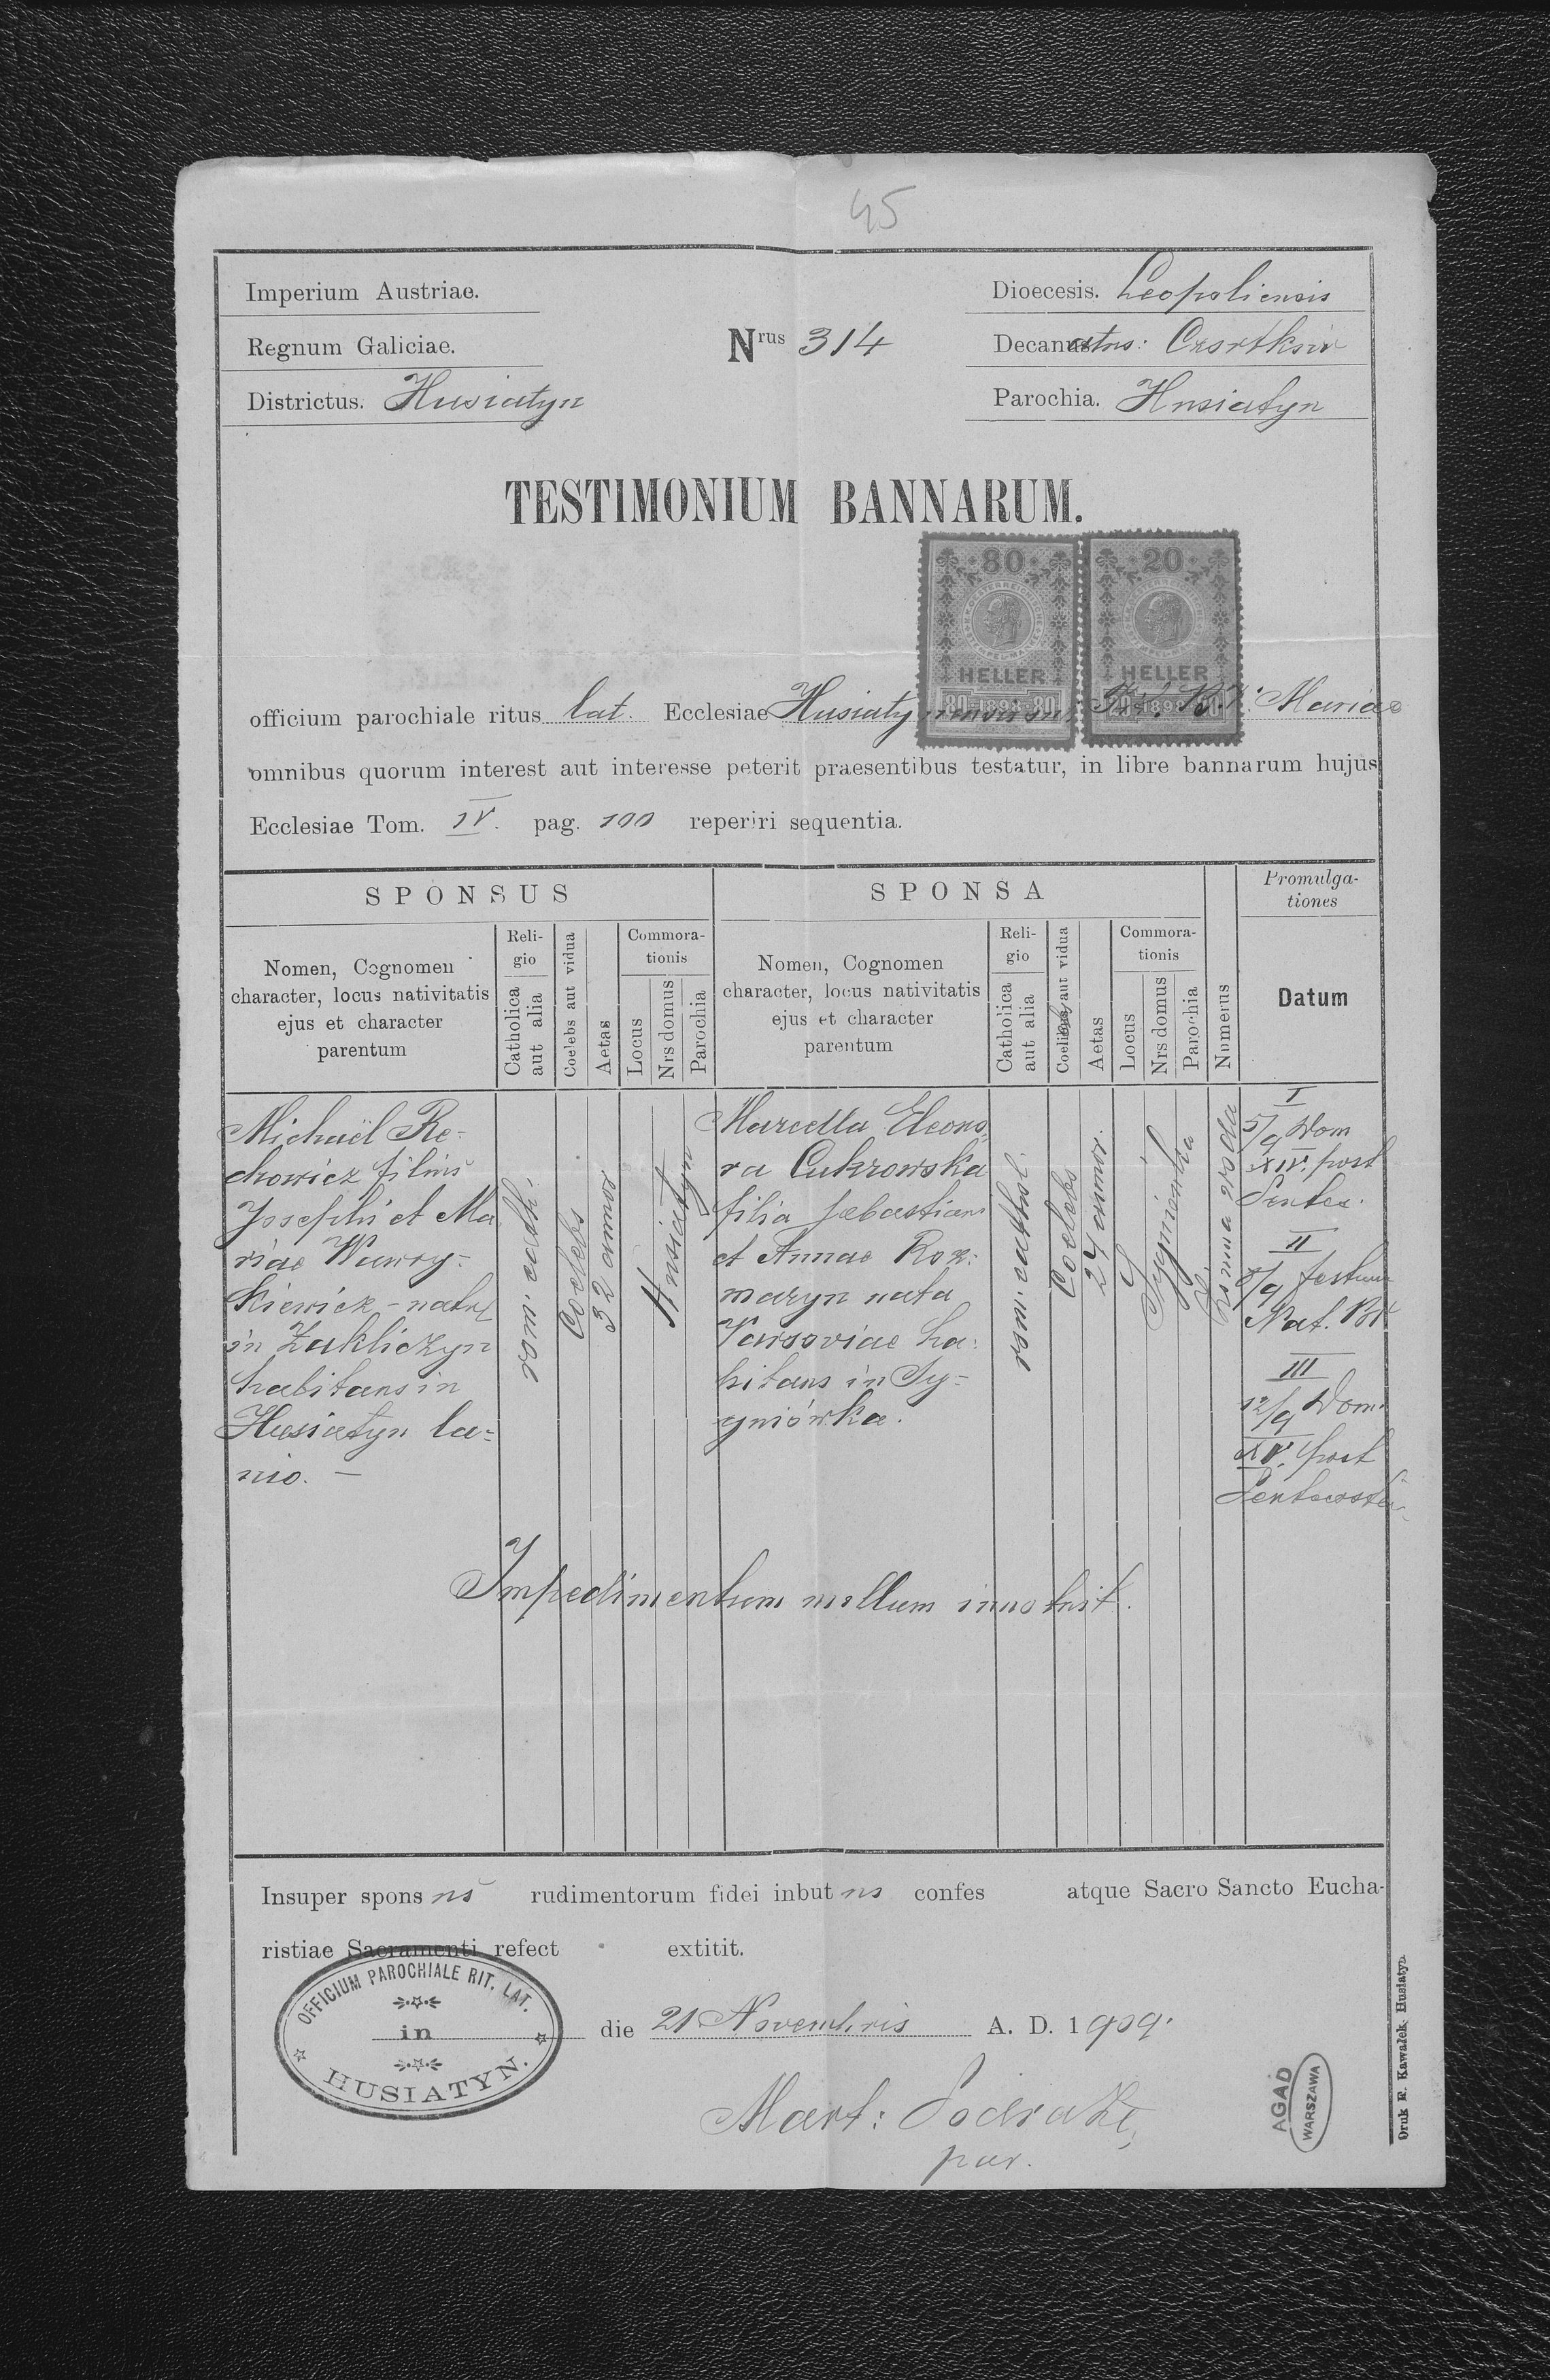 45
Imperium Austriae.
Regnum Galiciae.
Districtus. Husiatyn
Nrus 314
Dioecesis. Leopoliensis
Decanatus: Czortków
Parochia. Husiatyn
TESTIMONIUM BANNARUM.
80 HELLER 80 1898 80
20 HELLER 20 1898 20
officium parochiale ritus lat. Ecclesiae Husiatynensis B. V. Mariae
omnibus quorum interest aut interesse peterit praesentibus testatur, in libre bannarum hujus
Ecclesiae Tom. IV. pag. 100 reperiri sequentia.
SPONSUS
SPONSA
Promulga-
tiones
Nomen, Cognomen
character, locus nativitatis
ejus et character
parentum
Reli-
gio
Catholica
aut alia
Coelebs aut vidua
Aetas
Commora-
tionis
Locus
Nrs domus
Parochia
Nomen, Cognomen
character, locus nativitatis
ejus et character
parentum
Reli-
gio
Catholica
aut alia
Coelebs aut vidua
Aetas
Commora-
tionis
Locus
Nrs domus
Parochia
Numerus
Datum
Michaël Re-
chowicz filius
Josephi et Ma
riae Wawry-
kiewicz - natus
in Zakliczyn
habitans in
Husiatyn la-
nio. -
rom. cath.
Coelebs
32 annor
Husiatyn
Marcella Eleono
ra Cukrowska
filia Sebastiani
et Annae Roz-
maryn nata
Varsoviae ha-
bitans in Sy-
gniówka.
rom. cathol.
Coelebs
24 annor.
Sygniówka
I
5/9 Dom
XIV. post
Pentec.
II
8/9 festum
Nat. BV
III
12/9 Dom.
XV. post
Pentecoste
Impedimentum nullum innotuit.
Insuper spons us rudimentorum fidei inbut us confes atque Sacro Sancto Eucha-
ristiae Sacramenti refect extitit.
OFFICIUM PAROCHIALE RIT. LAT.
in
HUSIATYN.
die 21 Novembris A. D. 1909.
Mart:
par.
AGAD
WARSZAWA
Druk E. Kawałek Husiatyn